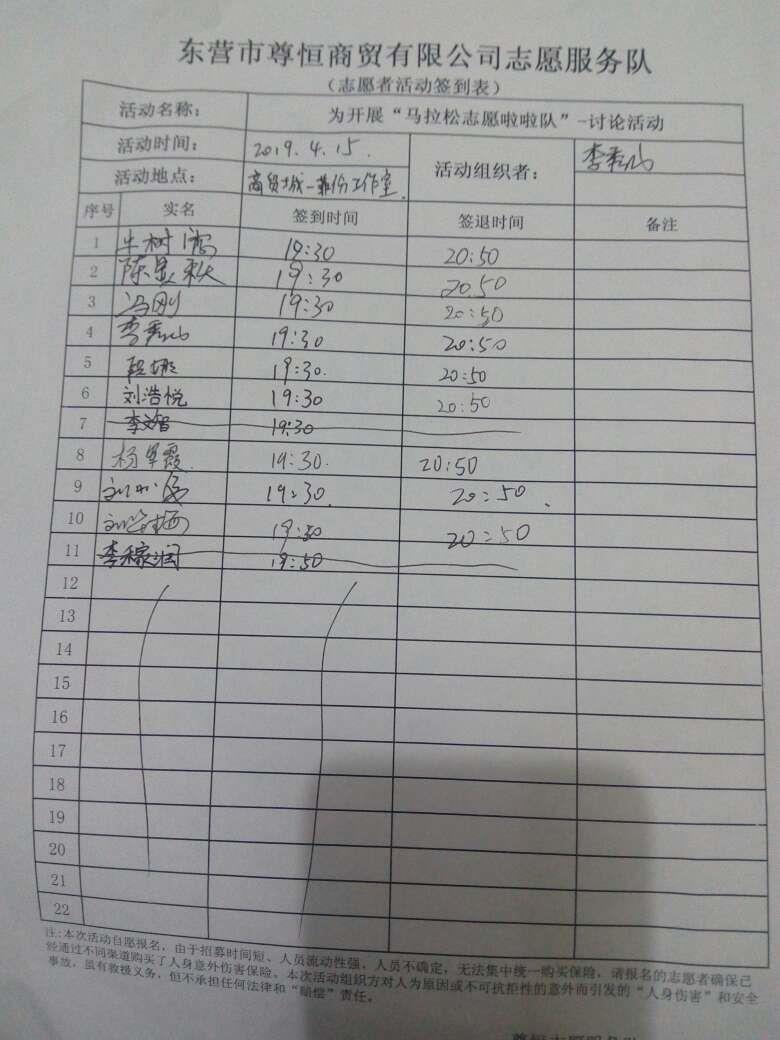 东营市尊恒商贸有限公司志愿服务队
（志愿者活动签到表）
活动名称： 为开展“马拉松志愿啦啦队”-讨论活动
活动时间： 2019.4.15. 活动组织者：
活动地点： 商贸城
序号 实名 签到时间 签退时间 备注
1 19:30 20:50
2 19:30 20.50
3 冯刚 19:30 20:50
4 19:30 20:50
5 19:30. 20:50
6 刘浩悦 19:30 20:50
7 李文智 19:30
8 19:30. 20:50
9 19:30. 20:50.
10 20:50
11
12
13
14
15
16
17
18
19
20
21
22
注:本次活动自愿报名，由于招募时间短、人员流动性强、人员不确定，无法集中统一购买保险，请报名的志愿者确保已
经通过不同渠道购买了人身意外伤害保险。本次活动组织方对人为原因或不可抗拒性的意外而引发的“人身伤害”和安全
事故，虽有救援义务，但不承担任何法律和“赔偿”责任。
尊恒志愿服务队